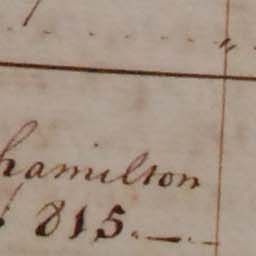 hamilton
815.—.-